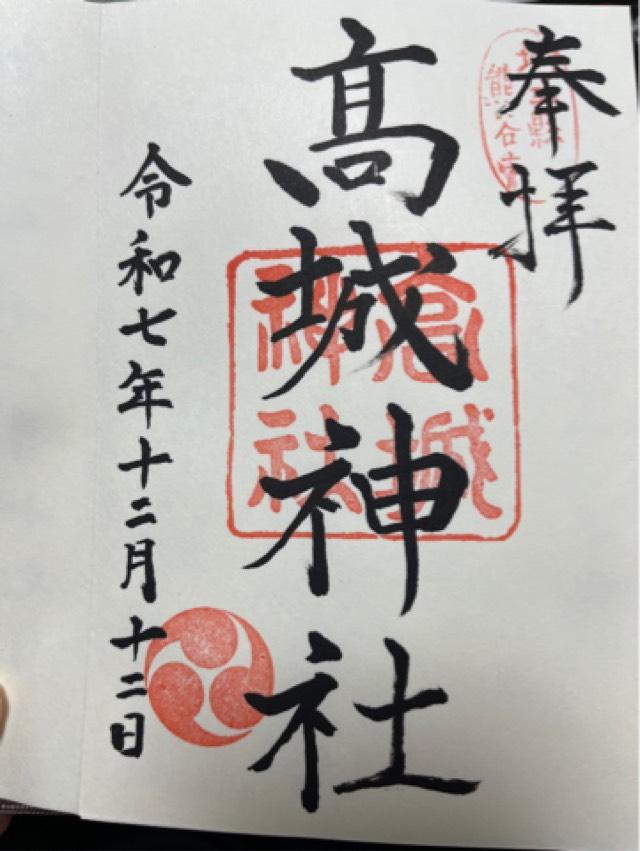 奉拝
埼玉縣
熊谷宿
髙城神社
高城
神社
令和七年十二月十二日